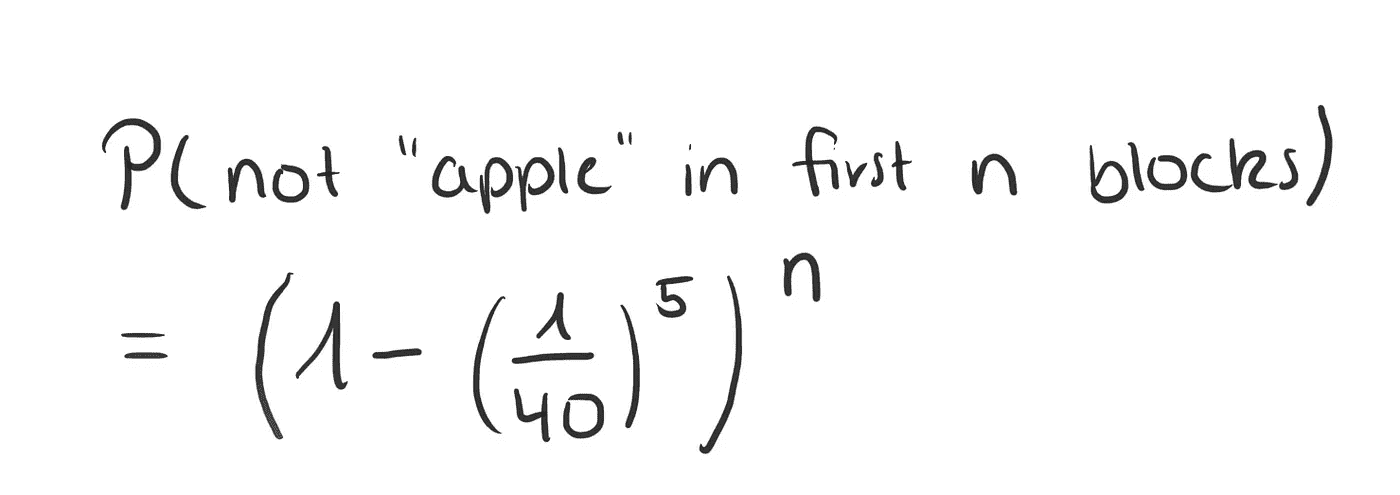 P( not "apple" in first n blocks)
= (1 - (1/40)^5)^n